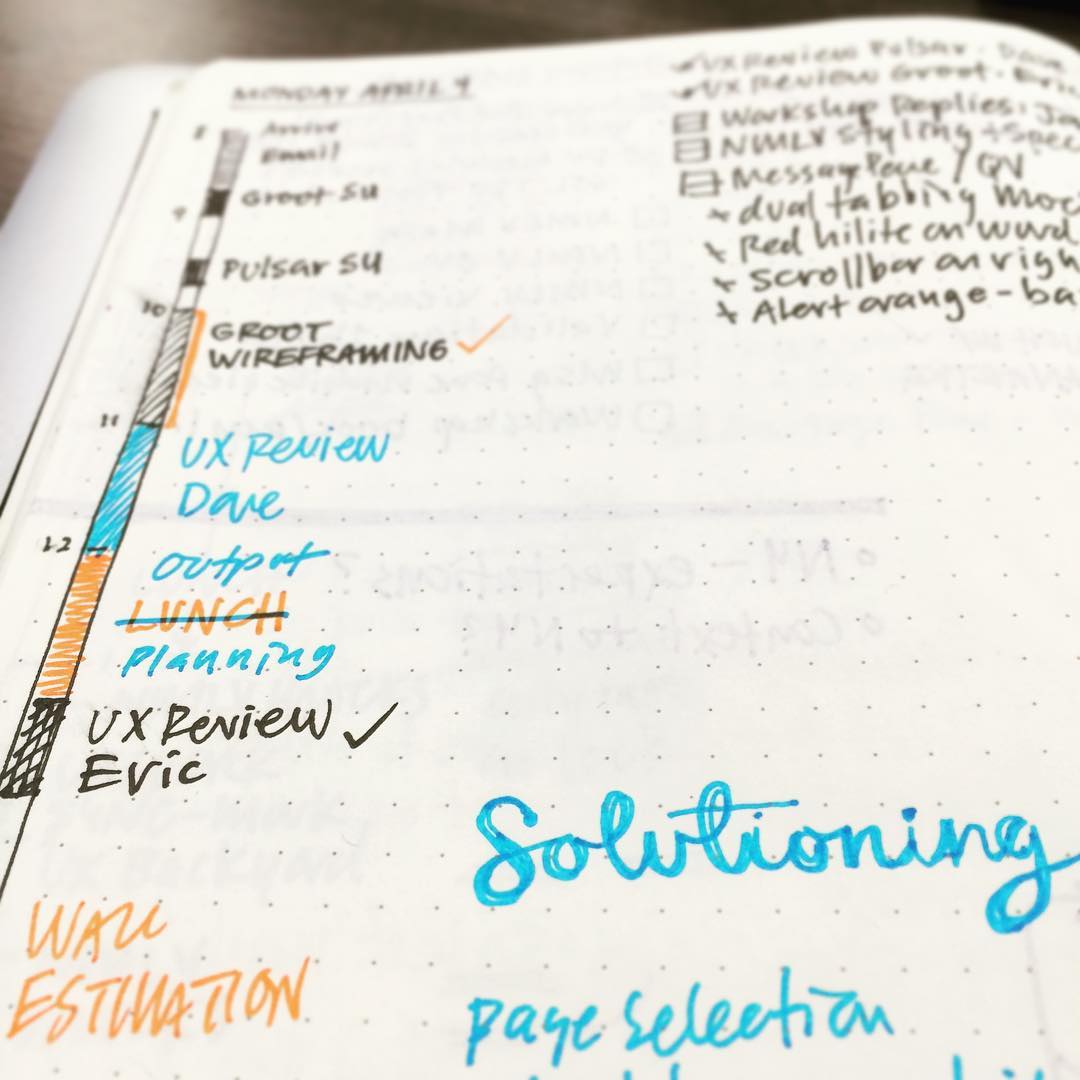 MONDAY APRIL 4
8
Arrive
Email
Groot SU
9
Pulsar SU
10
GROOT
WIREFRAMING
11
UX Review
Dave
12
output
LUNCH
Planning
UX Review
Eric
WALL
ESTIMATION
UX Review Pulsar - Dave
UX Review Groot - Eric
Workshop Replies:
NMLV Styling +
Message Pane / QV
+ dual tabbing
+ Red hilite on word
+ Scrollbar on
+ Alert orange -
Solutioning
page selection